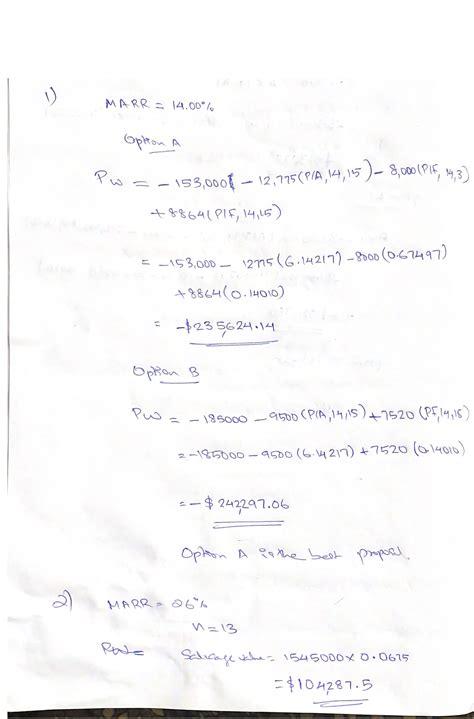 1)
MARR = 14.00%
Option A
PW = - 153,000 - 12,775(P/A,14,15) - 8,000(P/F,14,3)
+8864(P/F,14,15)
= -153,000 - 12775(6.14217) - 8000(0.67497)
+8864(0.14010)
= -$235,624.14
Option B
PW = -185000 - 9500(P/A,14,15) + 7520 (P/F,14,15)
= -185000 - 9500(6.14217) + 7520(0.14010)
= -$242,297.06
Option A is the best
2) MARR = 26%
n=13
Salvage value = 1545000 x 0.0675
= $104,287.5